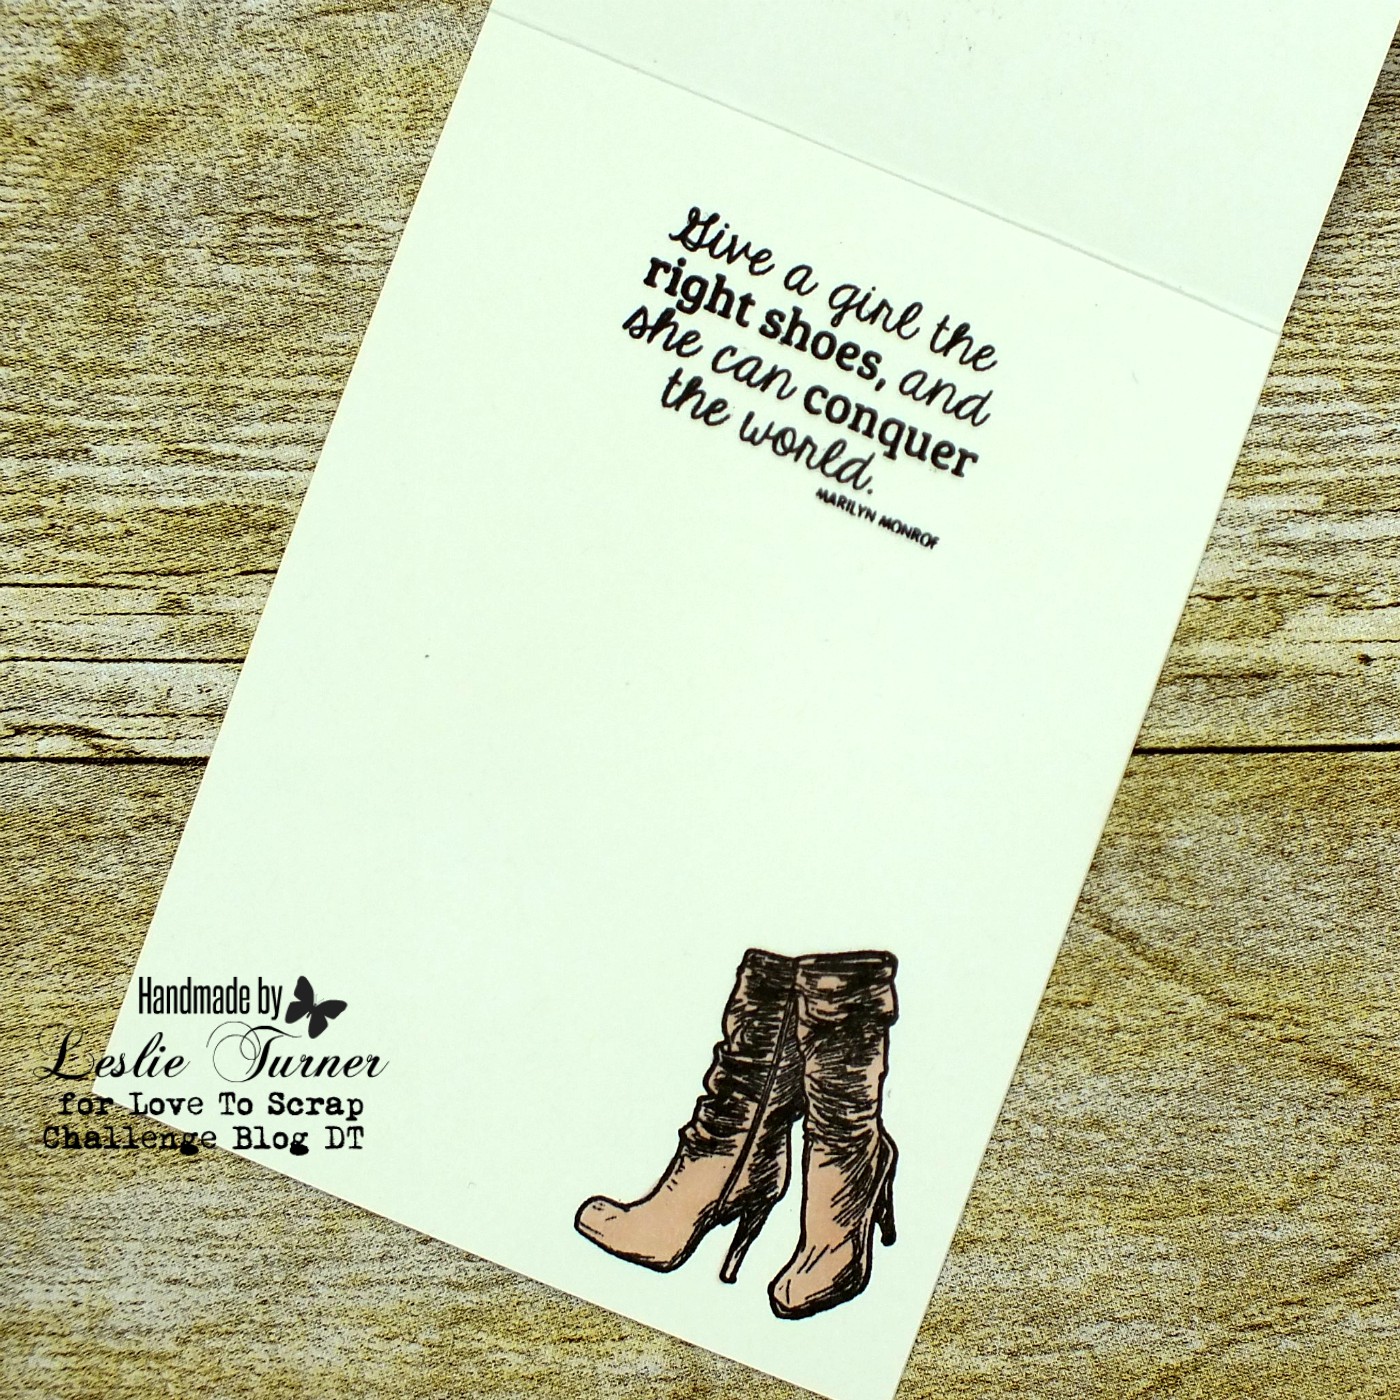 Give a girl the
right shoes, and
she can conquer
the world.
MARILYN MONROE
Handmade by
Leslie Turner
for Love To Scrap
Challenge Blog DT